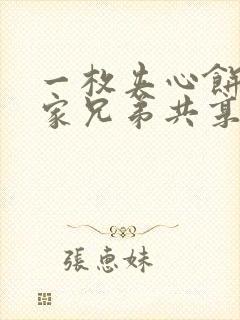 一枚夹心餅
家兄弟共享
張惠妹